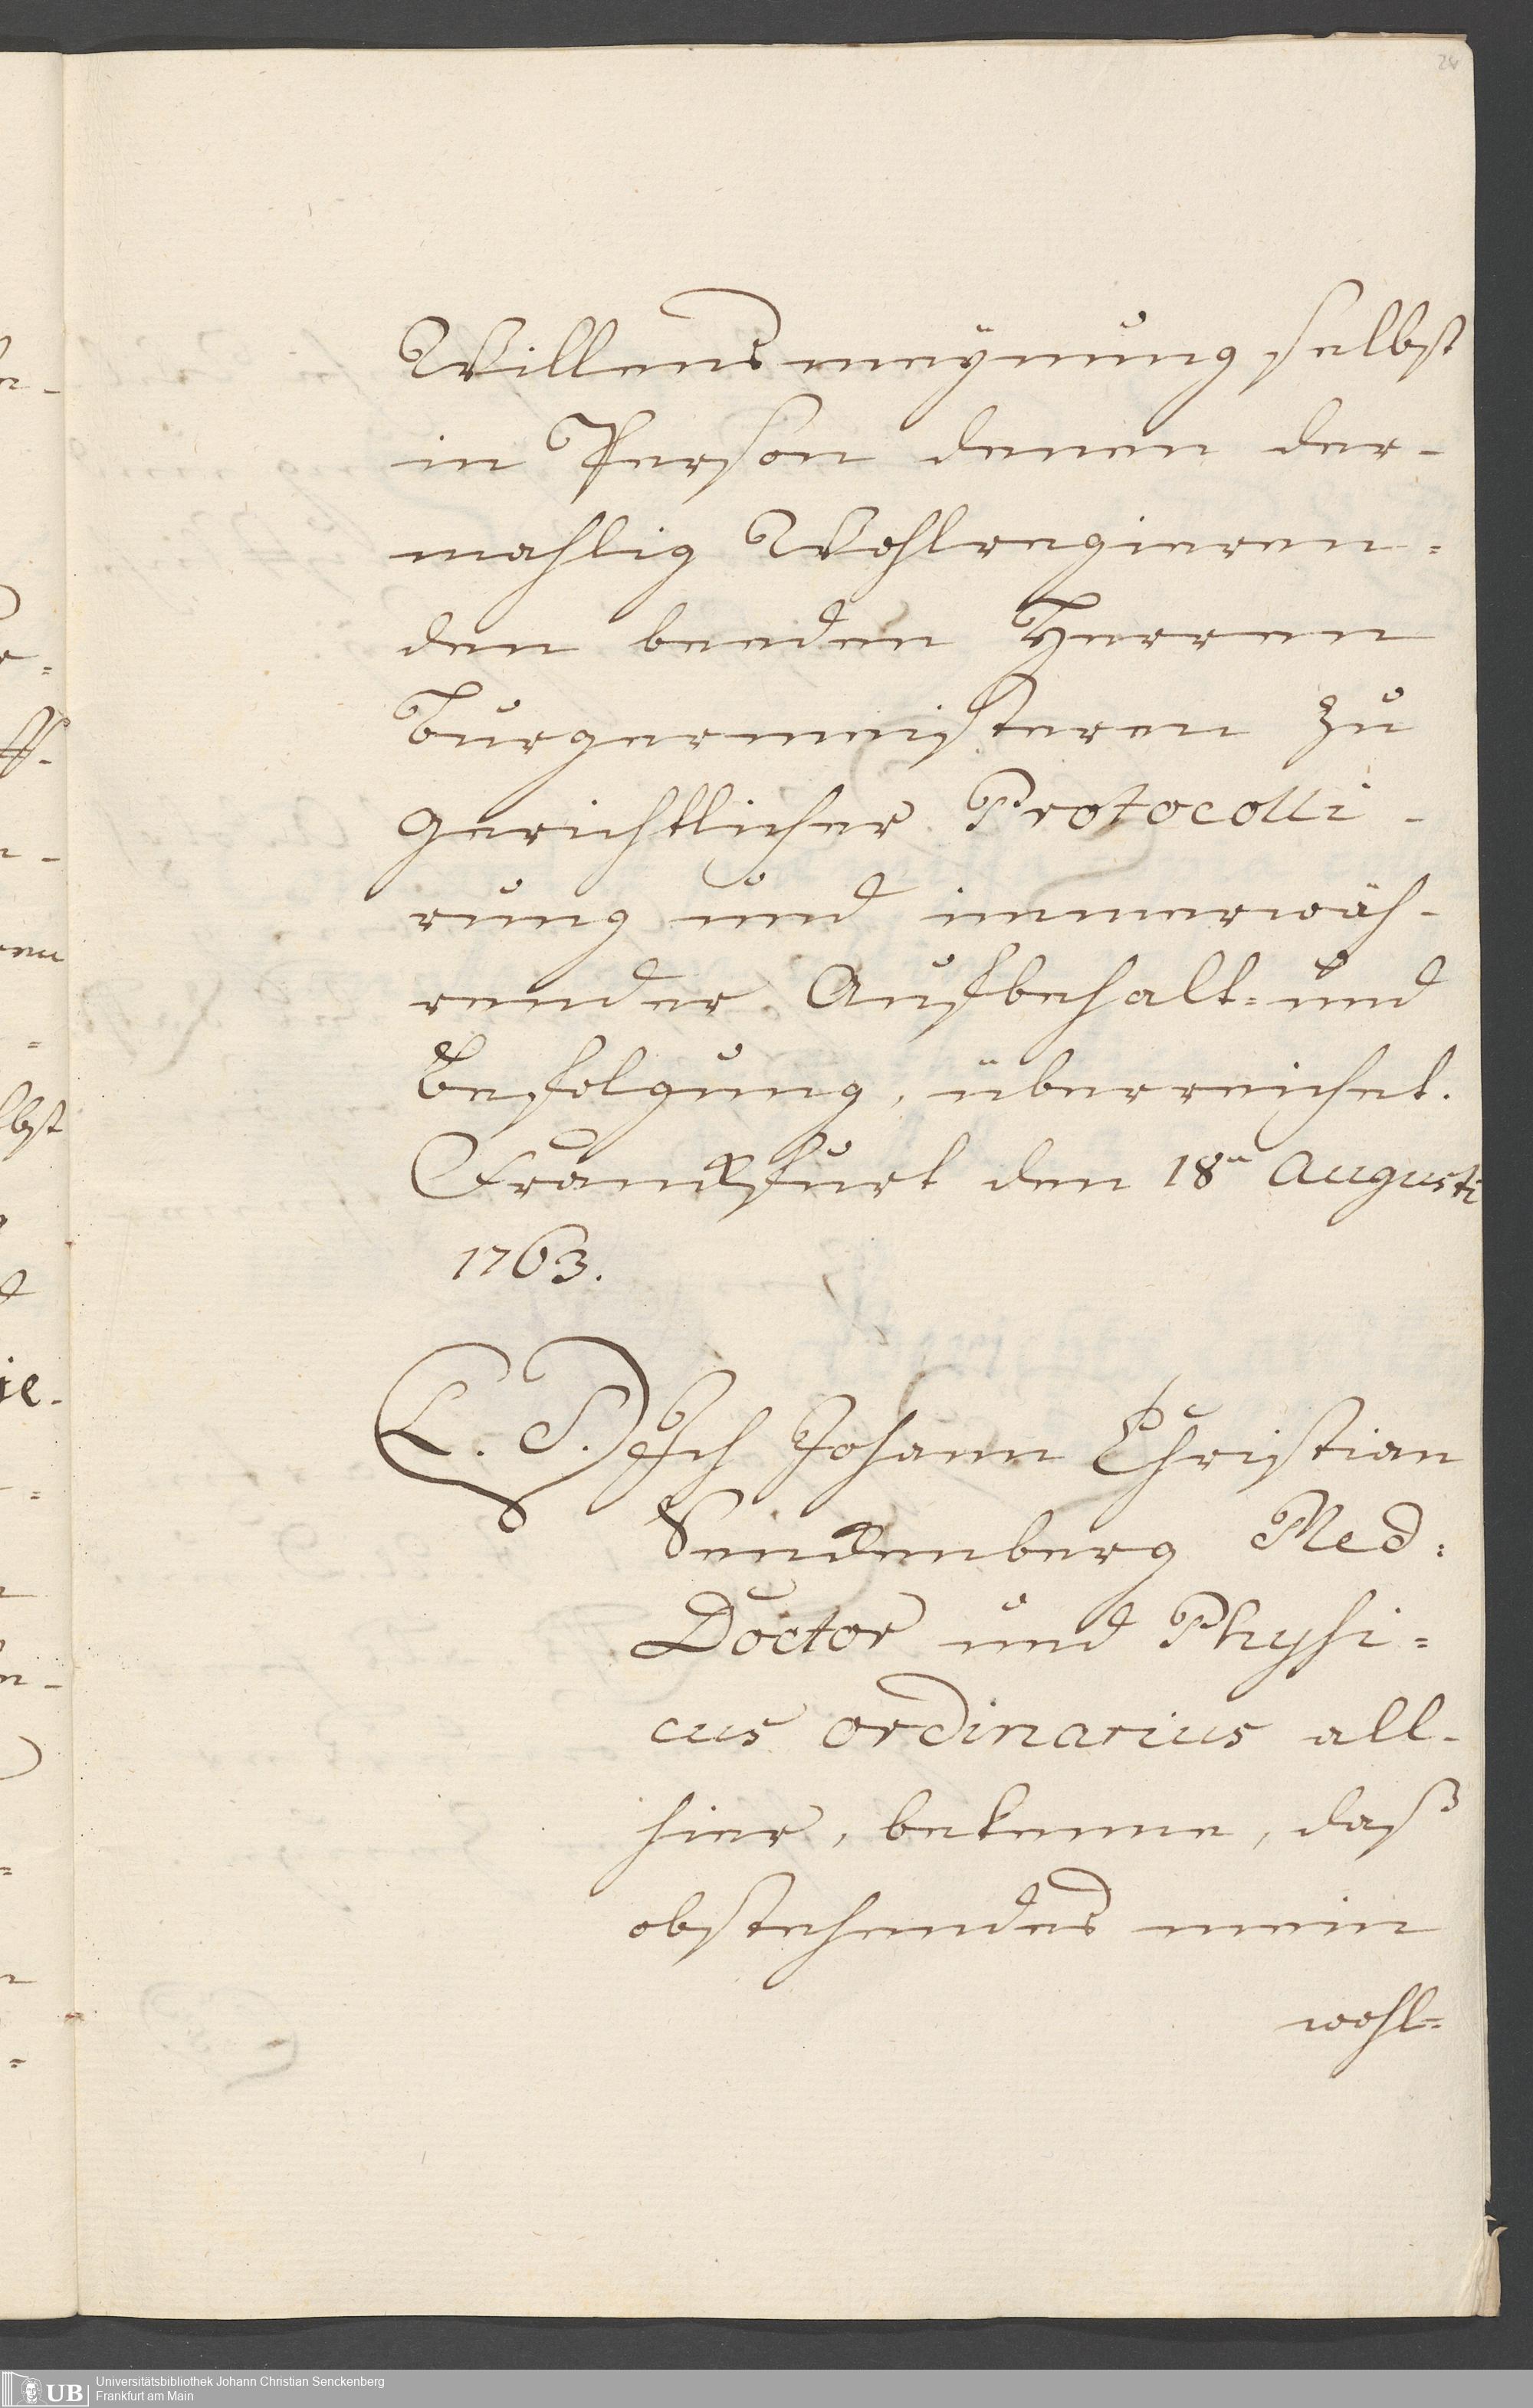 24
Willensmeÿnung selbst
in Person denen der-
mahlig Wohlregieren=
den beeden Herren
Burgermeisteren zu
gerichtlicher Protocolli-
rung und immerwäh-
render Aufbehalt= und
Befolgung, überreichet.
Franckfurt den 18n Augusti
1763.
L. S. Ich Johann Christian
Senckenberg Med:
Doctor und Physi=
cus ordinarius all-
hier, bekenne, daß
obstehendes mein
wohl=
UB Universitätsbibliothek Johann Christian Senckenberg
Frankfurt am Main